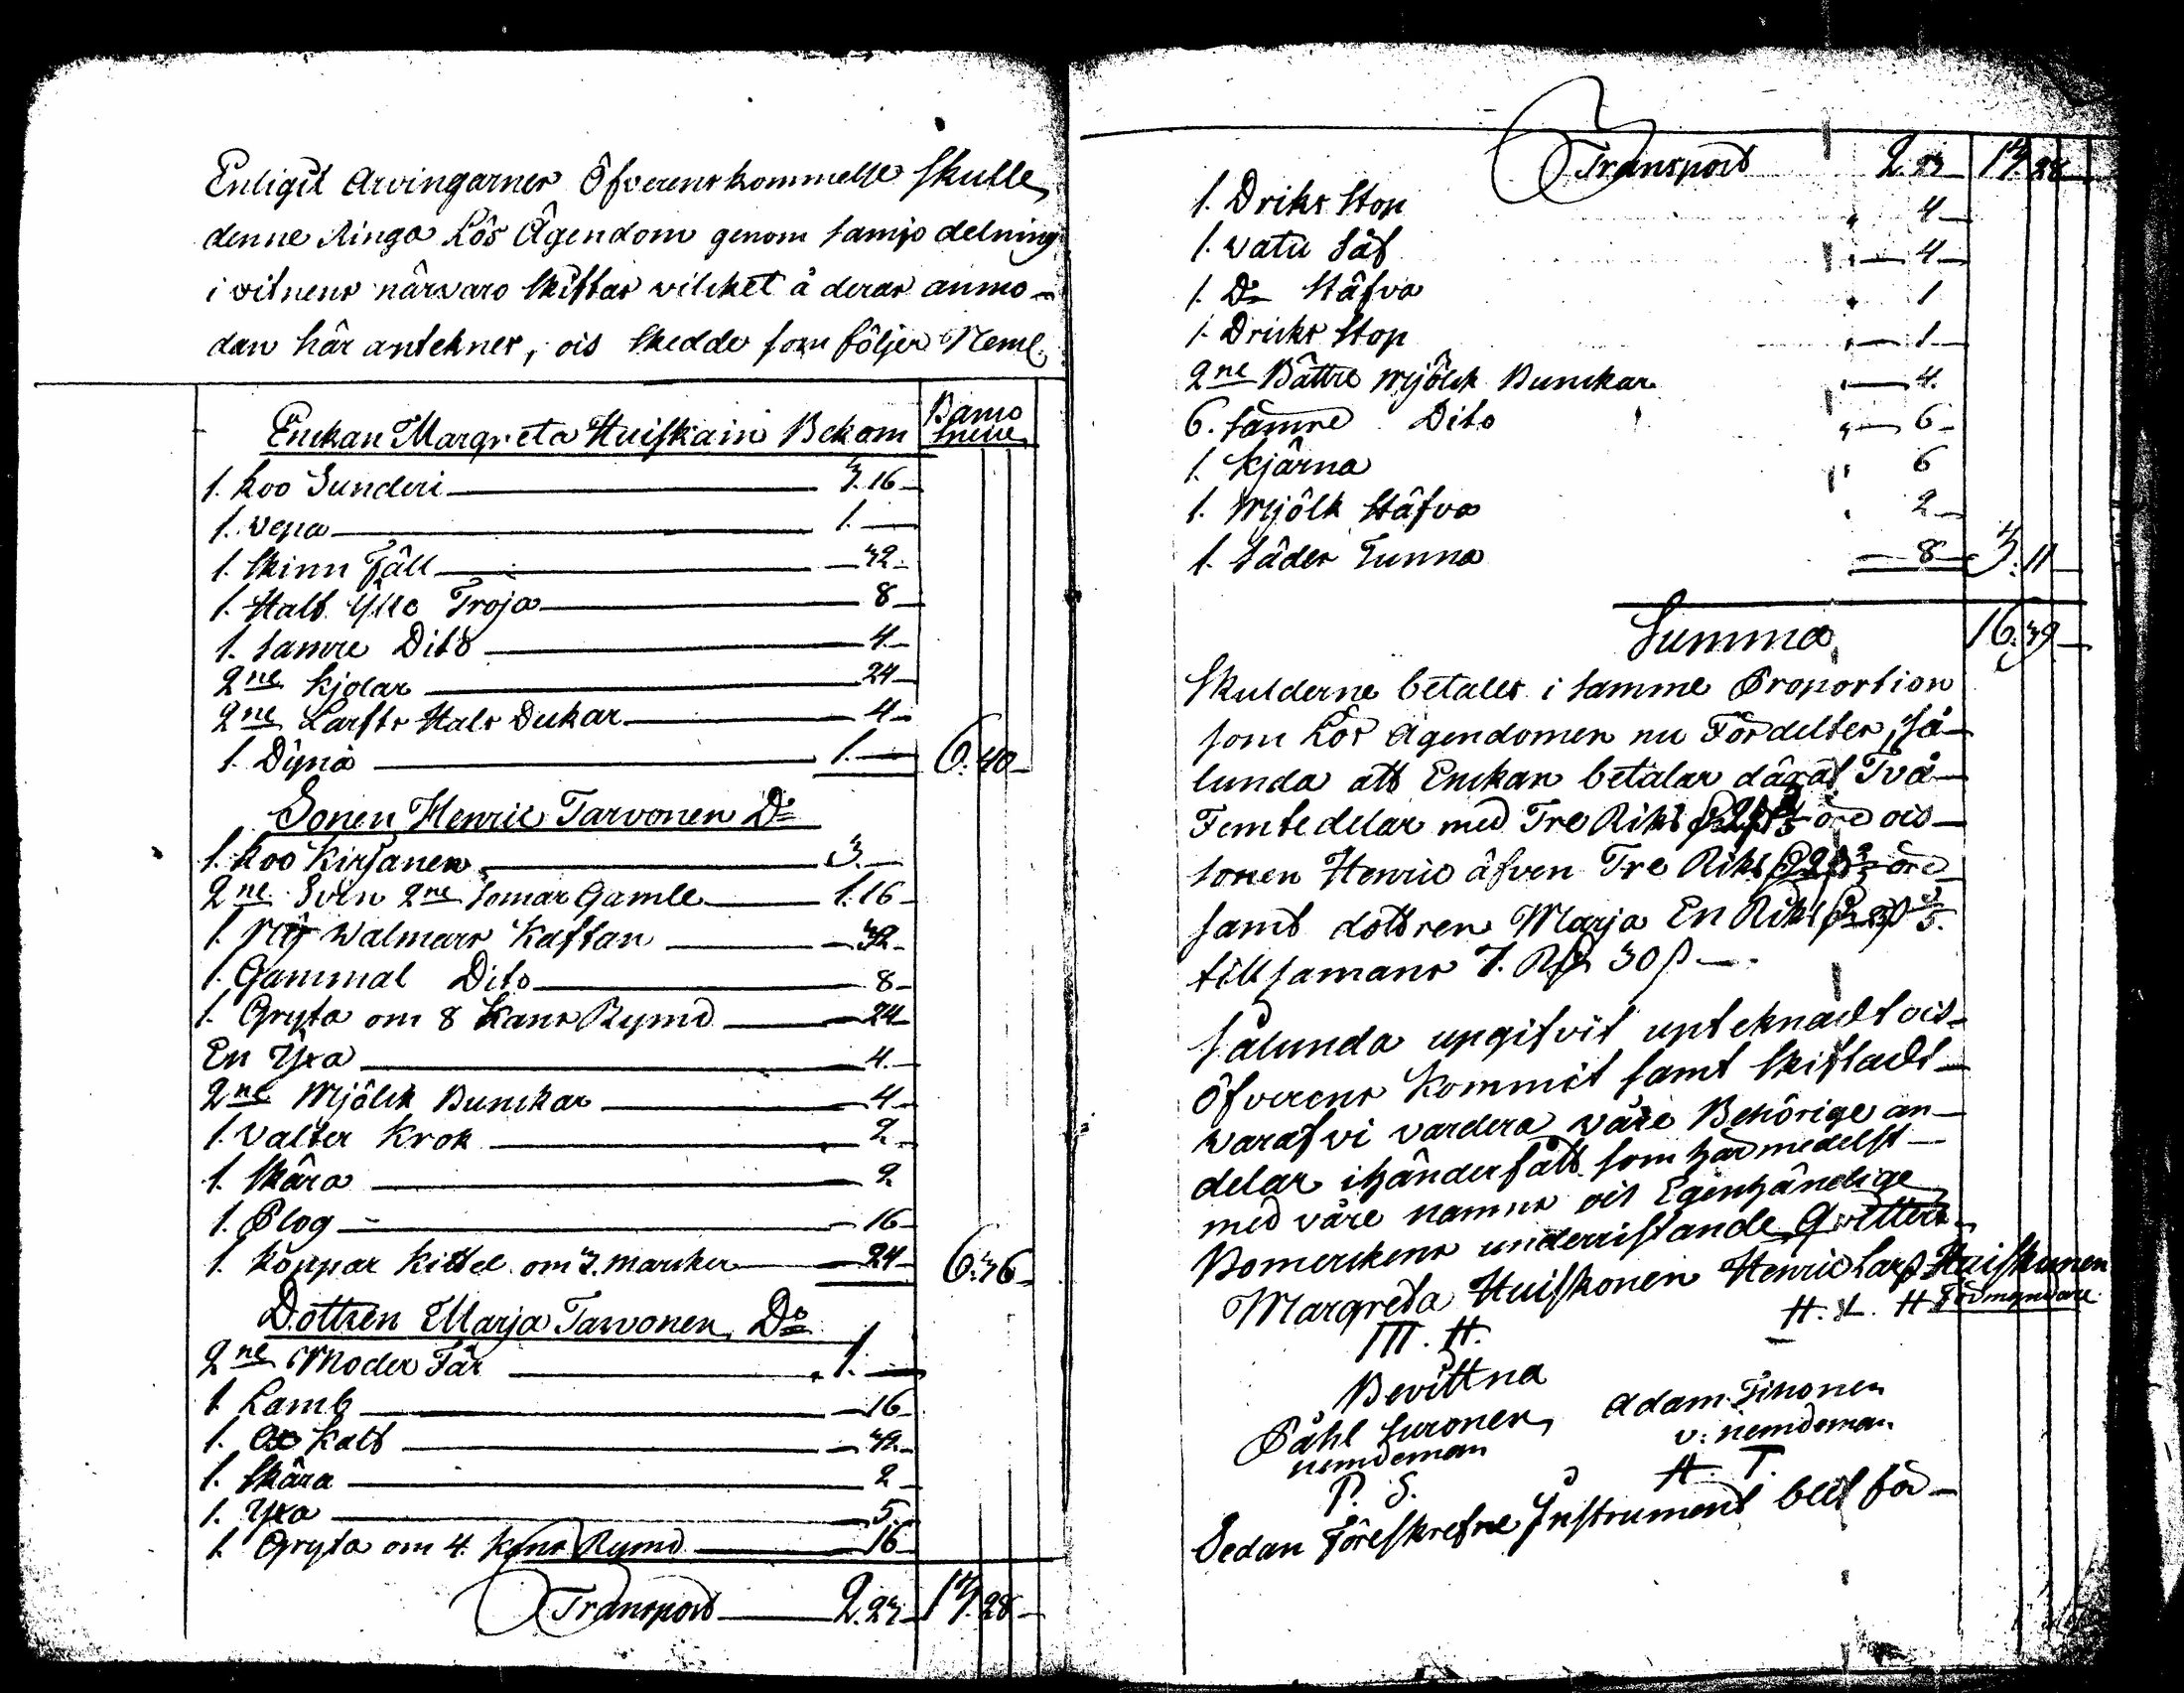 Enligit Arvingarnes Öfverenskommelse skulle
denne Ringa Lös Ägendom genom samjo delning
i vitnens närvaro skiftas vilcket å deras anmo-
dan här antekner, ock skedde som följer Neml.
Enckan Margreta Huiskain Bekom Bamo
1. koo Sunderi 3.16
1. vepa 1.
1. Skinn Fäll 32
1. Halb Ylle Troja 8
1. samre Dito 4
2ne Kjolar 24
2ne Larfts Hals Dukar 4
1. Dyna 1. 6.40
Sonen Henric Tarvonen Do
1. koo Kirjanen 3.
2ne Svin 2ne somar Gamle 1.16
1. Ny Walmars Kaftan 32
1. Gammal Dito 8
1. Gryta om 8 Kans Rymd 24
En Yxa 4
2ne Mjölck Bunckar 4
1. Valter Krok 2
1. Skära 2
1. Plog 16
1. koppar Kittel om 3. marcker 24 6.36
Dottren Marja Tarvonen Do
2ne Moder Får 1.
1 Lamb 16
1. Ox Kalb 32
1. Skära 2
1. Yxa 5
1. Gryta om 4. Kans Rymd 16
Transport 2.23 13.28
Transport 2.23 13.28
1. Driks Stop 4
1. vatu såf 4
1. Do Stäfva 1
1. Dricks Stop 1
2ne Bättre Mjölck Bunckar 4
6. sämre Dito 6
1. Kjärna 6
1. Mjölk Stäfva 2
1. Säder Tunna 8 3.11
Summa 16.39
Skulderne betales i samme Proportion
som Lös Ägendomen nu Fördeltes, så-
lunda att Enckan betalar däraf Två
Femtedelar med Tre Riks öre ock
sonen Henric äfven Tre Riks öre
samt dottren Marja En Riks
tillsamans 7. Rd 30 ß
sålunda upgifvit upteknadt ock
öfverens Kommit samt Skiftadt
waraf vi vardera våre Behörige an-
delar ihänder fått som här medelst
med våre namns ock Egenhändige
Bomerckens underristande Qvitteras
Margreta Huiskonen Henric Lars Huiskonen
M. H. H. L. H Förmyndare
Bevittna
Påhl Suronen Adam Tihonen
nemdeman v: nemdeman
P. S. A. T.
Sedan Föreskrefne Instrument blef för-